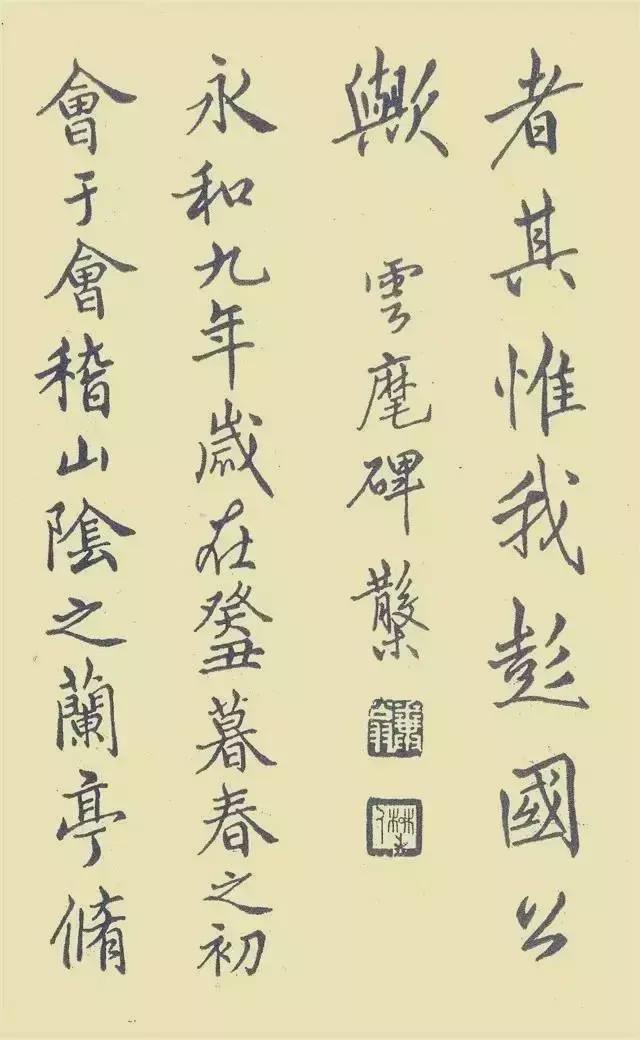 者其惟我彭國公
歟 雲麾碑 散木
永和九年歲在癸丑暮春之初
會于會稽山陰之蘭亭脩